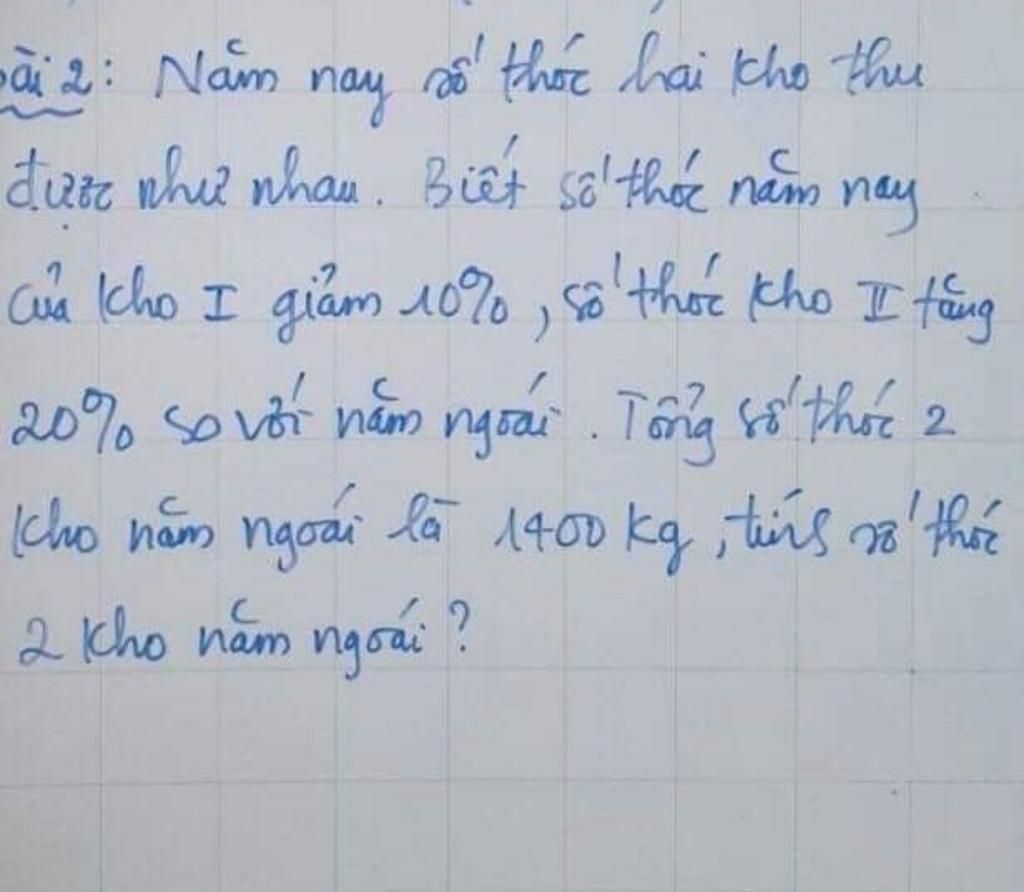 bài 2: Năm nay số thóc hai kho thu
được như nhau. Biết số thóc năm nay
của kho I giảm 10%, số thóc kho II tăng
20% so với năm ngoái. Tổng số thóc 2
kho năm ngoái là 1400 kg, tính số thóc
2 kho năm ngoái?